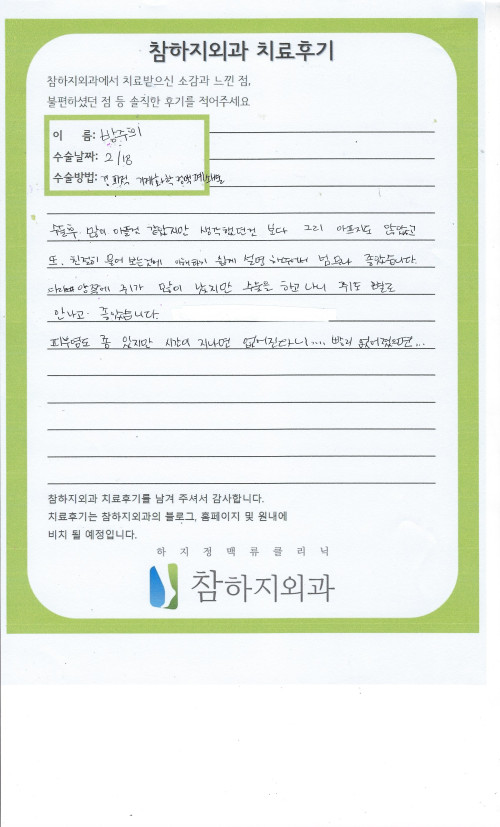 참하지외과 치료후기
참하지외과에서 치료받으신 소감과 느낀 점,
불편하셨던 점 등 솔직한 후기를 적어주세요
이 름:
수술날짜: 2/18
수술방법: 경피적 기계화학 정맥폐쇄술
수술후 많이 아플것 같았지만 생각했던것 보다 그리 아프지도 않았고
또, 친절히 물어 보는것에 이해하기 쉽게 설명 해주셔서 넘으나 좋았습니다.
다리에 양쪽에 쥐가 많이 났지만 수술을 하고 나니 쥐도 별로
안나고 좋았습니다.
피부염도 좀 있지만 시간이 지나면 없어진다니.... 빨리 없어졌으면...
참하지외과 치료후기를 남겨 주셔서 감사합니다.
치료후기는 참하지외과의 블로그, 홈페이지 및 원내에
비치 될 예정입니다.
하지정맥류클리닉
참하지외과